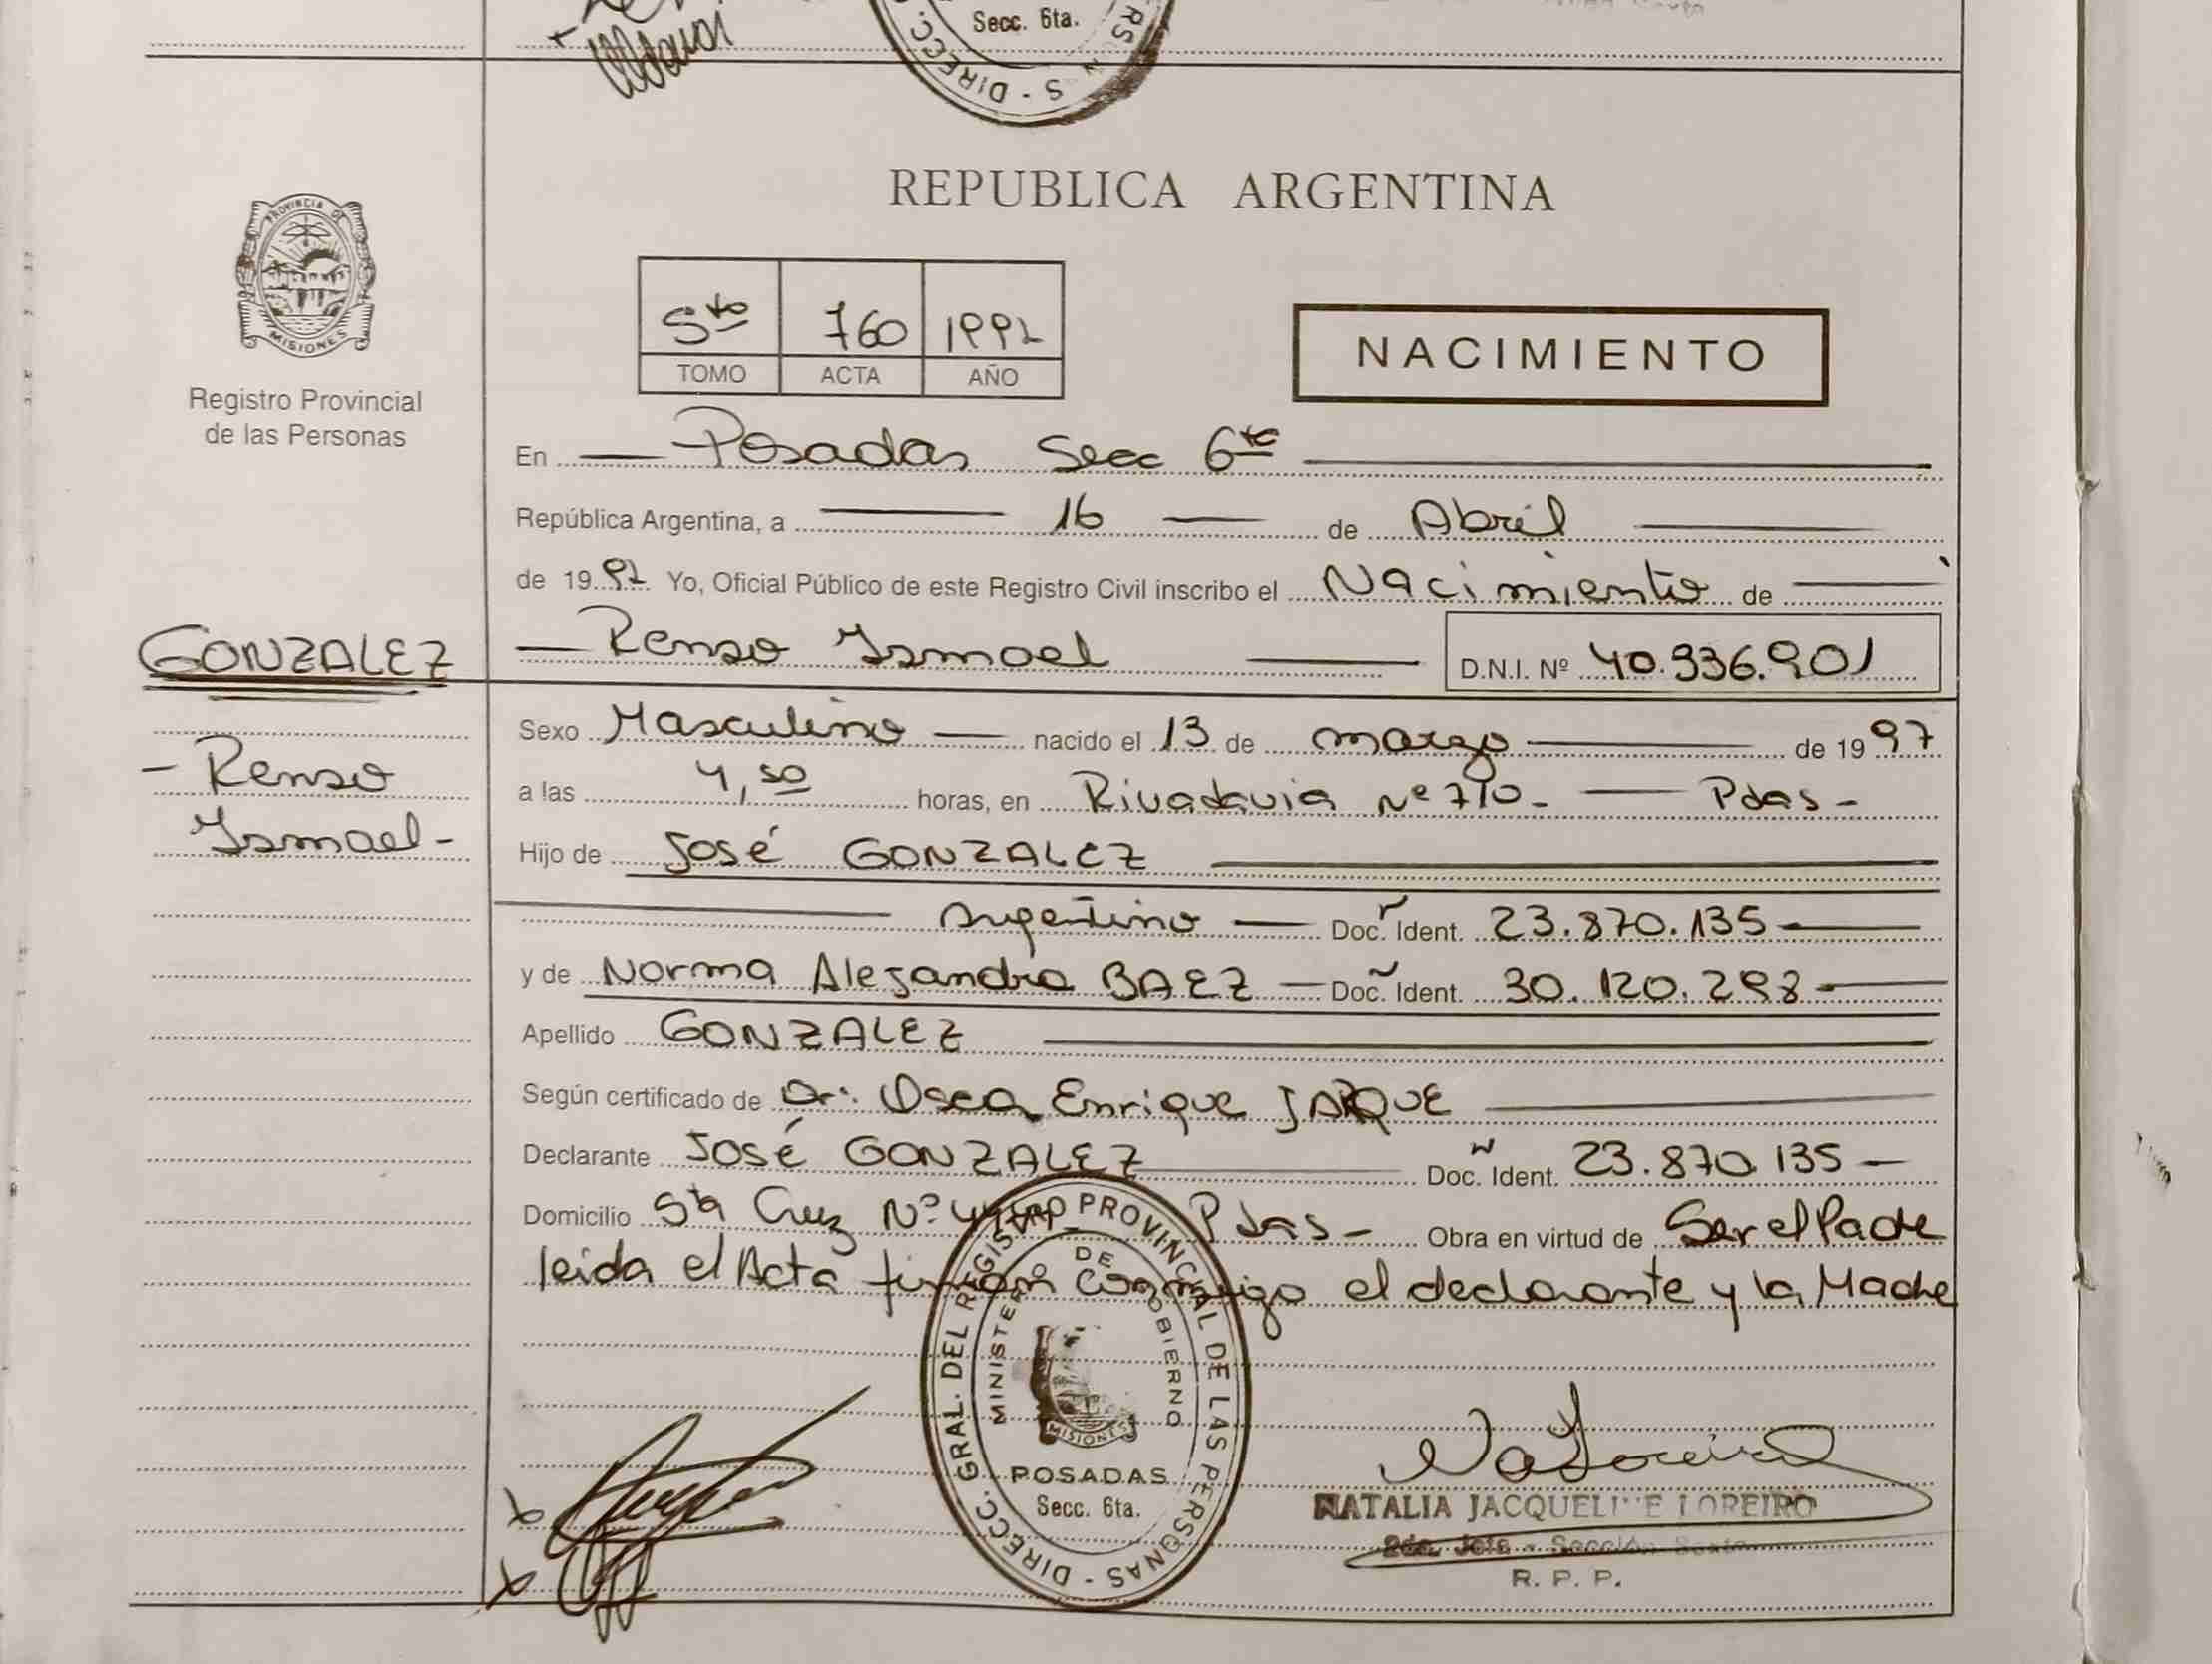 Secc. 6ta.
S - DIRECC.
REPUBLICA ARGENTINA
PROVINCIA DE
MISIONES
Registro Provincial
de las Personas
5to 760 1997
TOMO ACTA AÑO
NACIMIENTO
En Posadas Secc 6ta
República Argentina, a 16 de Abril
de 1997 Yo, Oficial Público de este Registro Civil inscribo el Nacimiento de
GONZALEZ
Renso Ismael D.N.I. Nº 40.336.901
Sexo Masculino nacido el 13 de marzo de 1997
- Renso
a las 4,50 horas, en Rivadavia Nº 710 - Pdas -
Ismael -
Hijo de José GONZALEZ
Argentino Doc. Ident. 23.870.135
y de Norma Alejandra BAEZ Doc. Ident. 30.120.298
Apellido GONZALEZ
Según certificado de Dr. Oscar Enrique JARQUE
Declarante José GONZALEZ Doc. Ident. 23.870.135
Domicilio Sta Cruz Nº Pdas - Obra en virtud de Ser el Padre
leida el Acta firman conmigo el declarante y la Madre
DIRECC. GRAL. DEL REGISTRO PROVINCIAL DE LAS PERSONAS
MINISTERIO DE GOBIERNO
MISIONES
POSADAS
Secc. 6ta.
NATALIA JACQUELINE LOREIRO
2da. Jefa - Sección Sexta
R. P. P.